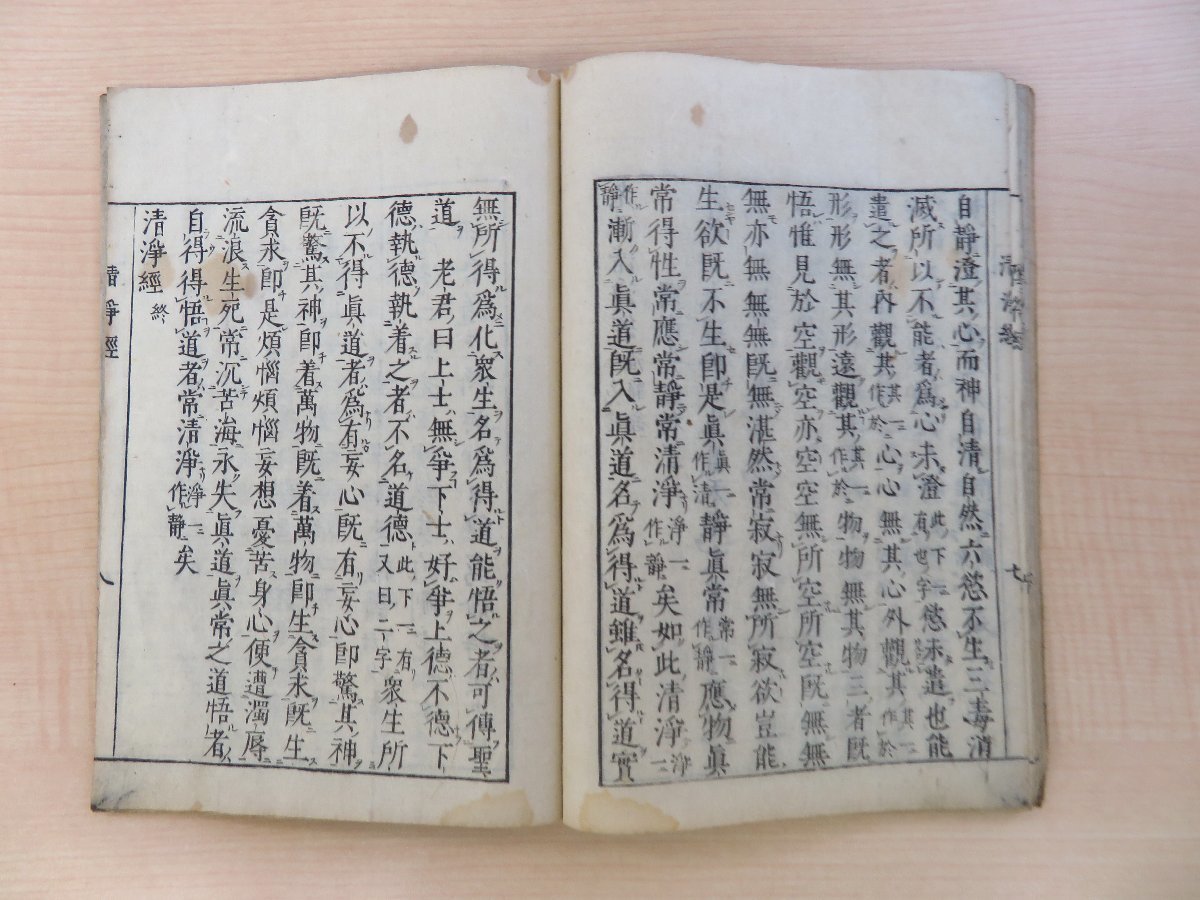 自靜澄其心而神自清自然六慾不生三毒消
滅所以不能者爲心未澄此下一有也字慾未遣也能
遣之者內觀其其一作於心心無其心外觀其其一作於
形形無其形遠觀其其一作於物物無其物三者既
悟惟見於空觀空亦空空無所空所空既無無
無亦無無無既無湛然常寂寂無所寂欲豈能
生欲既不生卽是眞眞一作清靜眞常常一作靜應物眞
常得性常應常靜常清淨淨一作靜矣如此清淨淨一
作靜漸入眞道既入眞道名爲得道雖名得道實
無所得爲化衆生名爲得道能悟之者可傳聖
道 老君曰上士無爭下士好爭上德不德下
德執德執着之者不名道德此下一有又曰二字衆生所
以不得眞道者爲有妄心既有妄心卽驚其神
既驚其神卽着萬物既着萬物卽生貪求既生
貪求卽是煩惱煩惱妄想憂苦身心便遭濁辱
流浪生死常沉苦海永失眞道眞常之道悟者
自得得悟道者常清淨淨一作靜矣
清淨經 終
清淨經
八